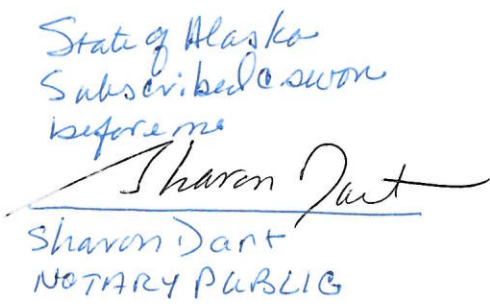 State of Alaska
Subscribed & sworn
before me
Sharon Dart
Sharon Dart
NOTARY PUBLIC